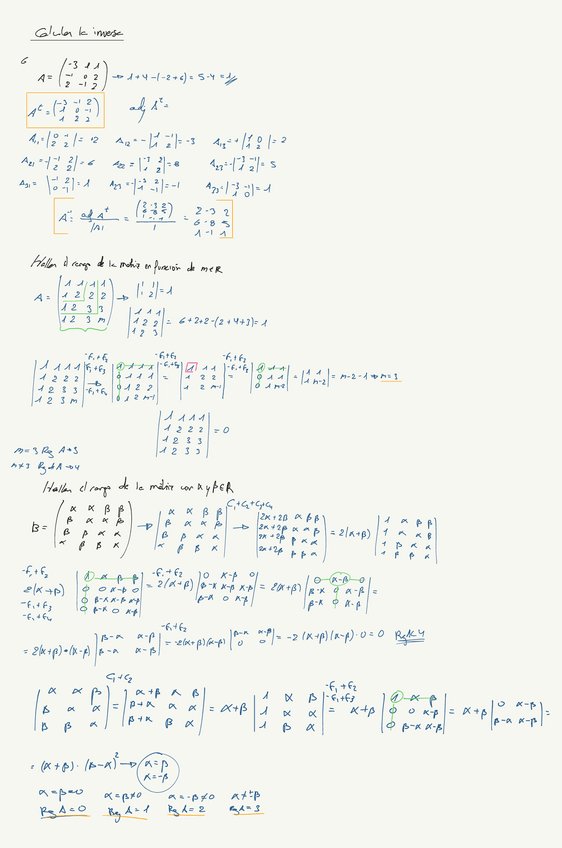 Calcular la inversa
6
A = (-3 1 1 / -1 0 2 / 2 -1 2) → 1+4-(-2+6) = 5-4 = 1
Aᵗ = (-3 -1 2 / 1 0 -1 / 1 2 2) adj Aᵗ =
A₁₁ = |0 -1 / 2 2| = +2 A₁₂ = -|1 -1 / 1 2| = -3 A₁₃ = +|1 0 / 1 2| = 2
A₂₁ = -|-1 2 / 2 2| = 6 A₂₂ = |-3 2 / 1 2| = -8 A₂₃ = -|-3 -1 / 1 2| = 5
A₃₁ = |-1 2 / 0 -1| = 1 = -|-3 2 / 1 -1| = -1 A₃₃ = |-3 -1 / 1 0| = 1
A⁻¹ = adj Aᵗ / |A| = (2 -3 2 / 6 -8 5 / 1 -1 1) / 1 = 2 -3 2 / 6 -8 5 / 1 -1 1
Hallar el rango de la matriz en función de m∈R
A = (1 1 1 1 / 1 2 2 2 / 1 2 3 3 / 1 2 3 m) → |1 1 / 1 2| = 1
|1 1 1 / 1 2 2 / 1 2 3| = 6+2+2-(2+4+3) = 1
-F₁+F₂ -F₁+F₃ -F₁+F₂
-F₁+F₃ -F₁+F₃
|1 1 1 1 / 1 2 2 2 / 1 2 3 3 / 1 2 3 m| → -F₁+F₄ |1 1 1 1 / 0 1 1 1 / 0 1 2 2 / 0 1 2 m-1| = |1 1 1 / 1 2 2 / 1 2 m-1| = |1 1 1 / 0 1 1 / 0 1 m-2| = |1 1 / 1 m-2| = m-2-1 ⇒ m=3
|1 1 1 1 / 1 2 2 2 / 1 2 3 3 / 1 2 3 3| = 0
m=3 Rg A → 3
m≠3 Rg A → 4
Hallar el rango de la matriz con α y β∈R
C₁+C₂+C₃+C₄
B = (α α β β / β α α β / β β α α / α β β α) → |α α β β / β α α β / β β α α / α β β α| → |2α+2β α β β / 2α+2β α α β / 2α+2β β α α / 2α+2β β β α| = 2(α+β) |1 α β β / 1 α α β / 1 β α α / 1 β β α|
-F₁+F₂ -F₁+F₂
2(α+β) |1 α β β / 0 0 α-β 0 / 0 β-α α-β α-β / 0 β-α 0 α-β| = 2(α+β) |0 α-β 0 / β-α α-β α-β / β-α 0 α-β| = 2(α+β) |0 α-β 0 / β-α 0 α-β / β-α 0 α-β| =
-F₁+F₃
-F₁+F₄
-F₁+F₂
= 2(α+β)·(α-β) |β-α α-β / β-α α-β| = -2(α+β)(α-β) |β-α α-β / 0 0| = -2(α+β)(α-β)·0 = 0 Rg<4
C₁+C₂ -F₁+F₂
-F₁+F₃
(α α β / β α α / β β α) = |α+β α β / β+α α α / β+α β α| = α+β |1 α β / 1 α α / 1 β α| = α+β |1 α β / 0 0 α-β / 0 β-α α-β| = α+β |0 α-β / β-α α-β| =
= (α+β)·(β-α)² → α=β
α=-β
α=β=0 α=β≠0 α=-β≠0 α≠±β
Rg A = 0 Rg A = 1 Rg A = 2 Rg A = 3